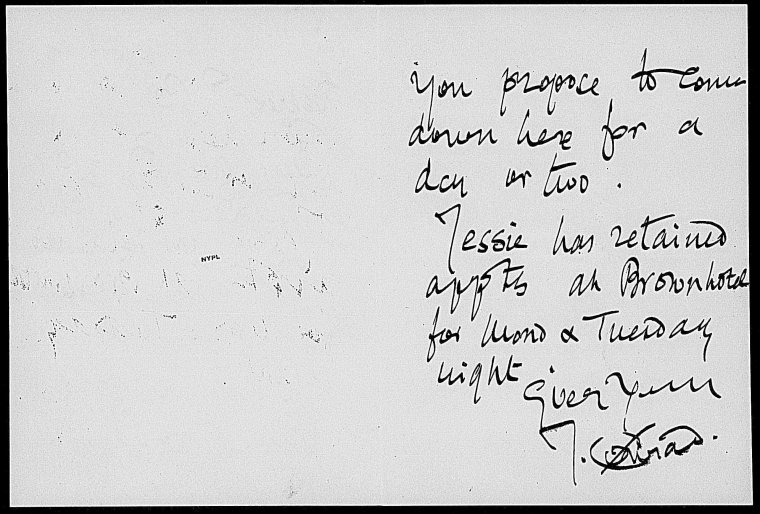 NYPL
you propose to come
down here for a
day or two.
Jessie has retained
appts at Brown hotel
for Mond & Tuesday
night
Ever Yours
J. Conrad.